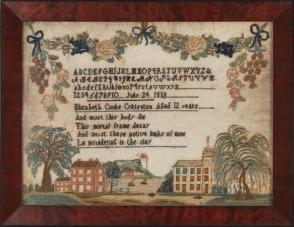 ABCDEFGHIJKLMNOPQRSTUVWXYZ&
ABCDEFGHIJKLMNOPQRSTUVWXYZ
abcdefghijklmnopqrstuvwxyz
12345678910 July 24 1819
Elizabeth Cooke Aged 12 years
And must this body die
This mortal frame decay
And must these active limbs of mine
Lie mouldering in the clay